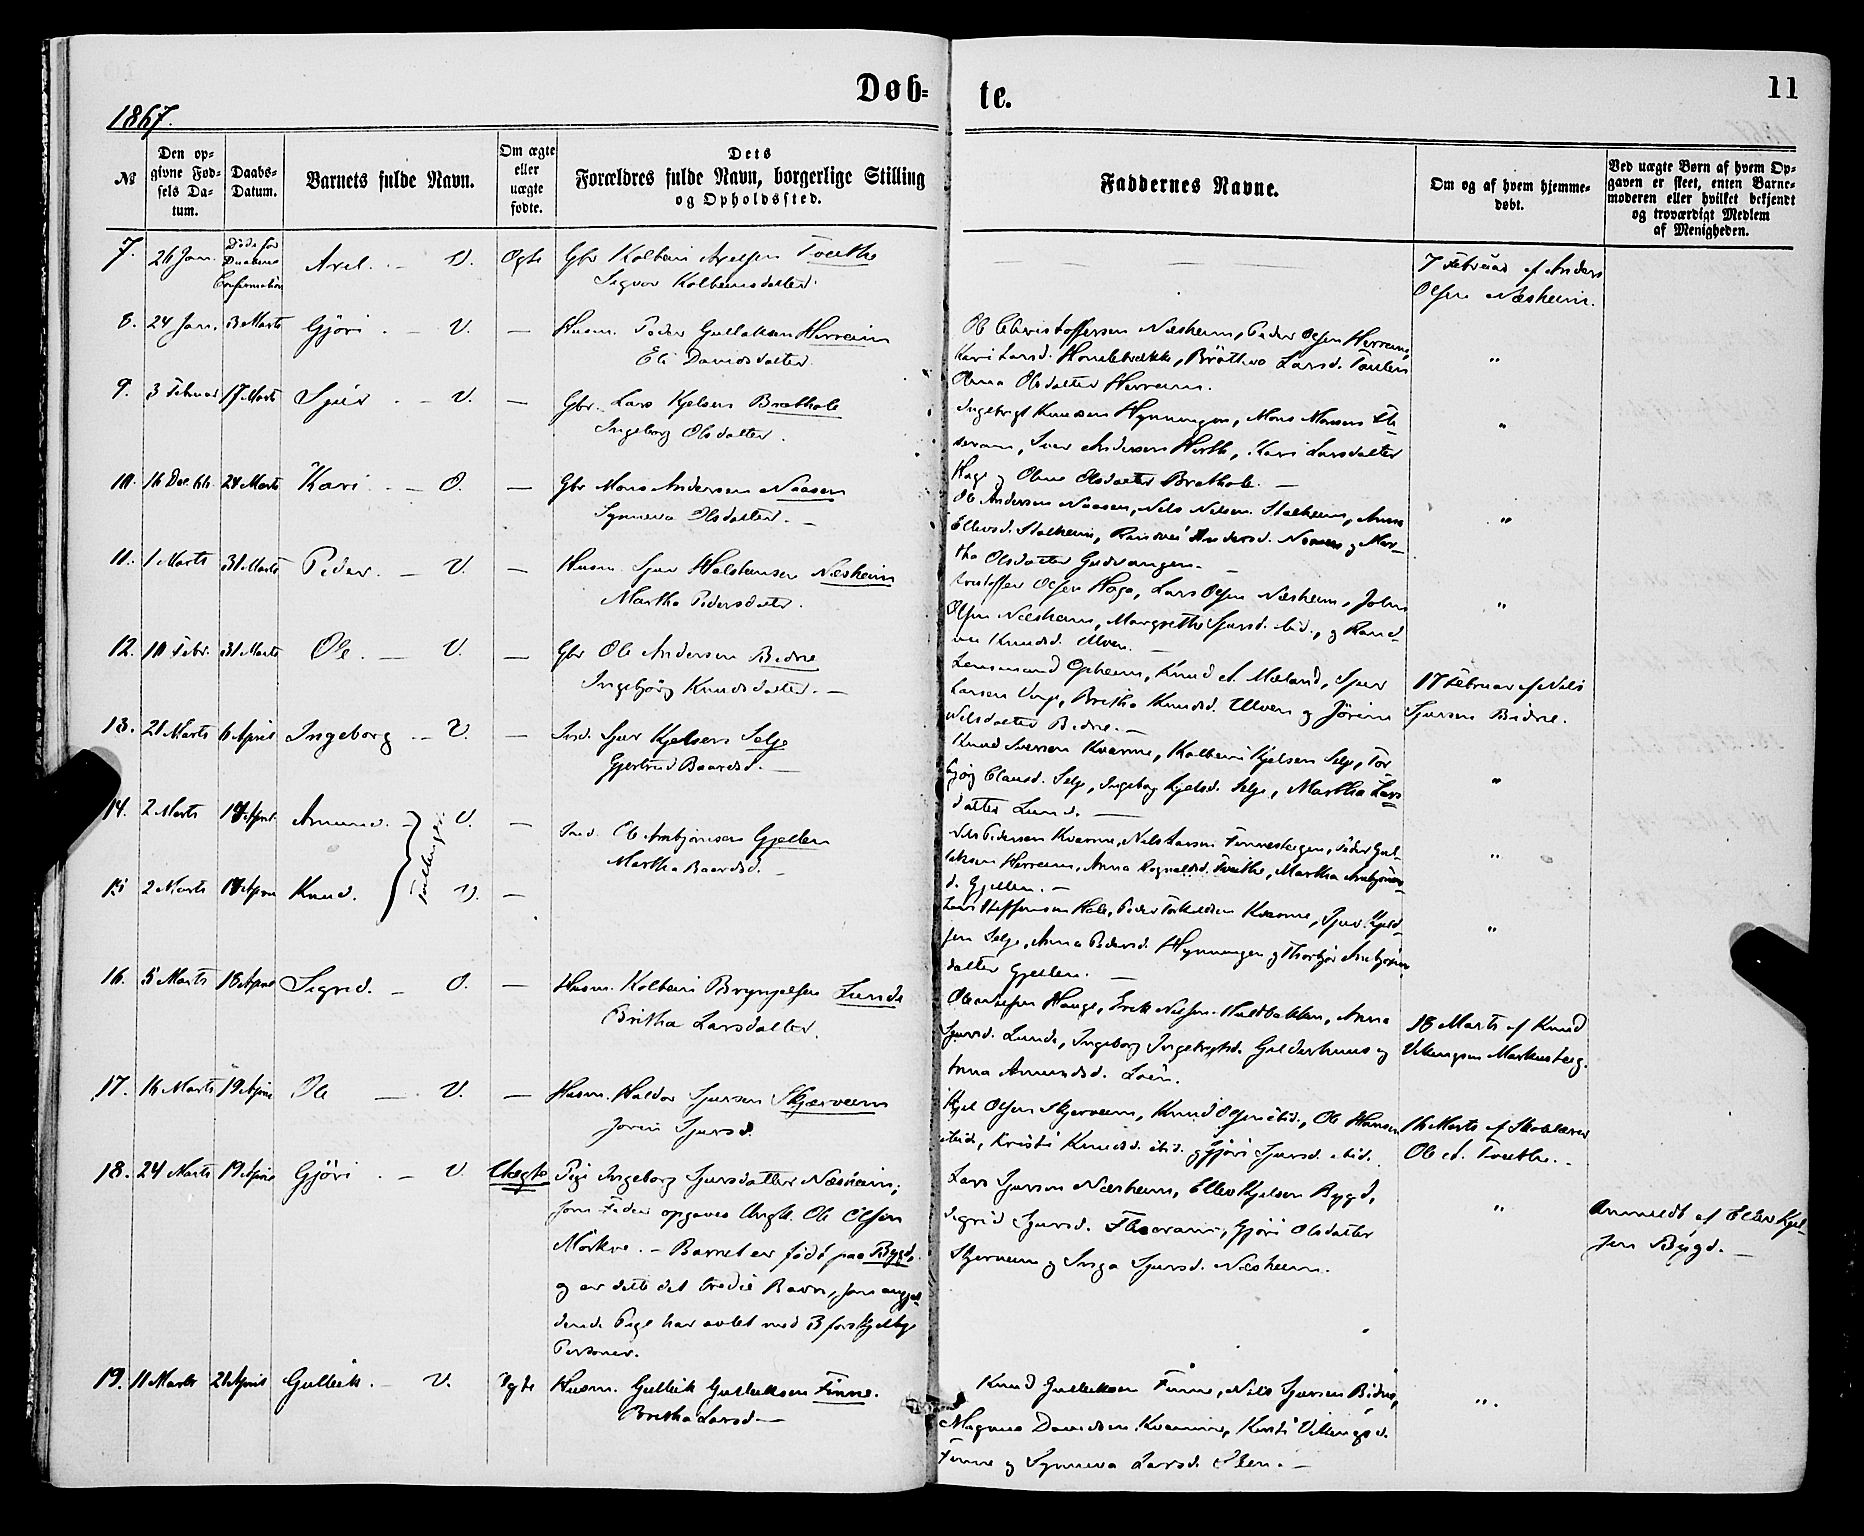 Døb-
te.
11
1867.
№
Den op-
givne Fød-
sels Da-
tum.
Daabs-
Datum.
Barnets fulde Navn.
Om ægte
eller
uægte
fødte.
Dets
Forældres fulde Navn, borgerlige Stilling
og Opholdssted.
Faddernes Navne.
Om og af hvem hjemme-
døbt.
Ved uægte Børn af hvem Op-
gaven er skeet, enten Barne-
moderen eller hvilket bekjendt
og troværdigt Medlem
af Menigheden.
7. 26 Jan. Døde før Daabens Confirmation Axel. - V. Ægte Gbr Kolbein Axelsen
Sigvor Kolbeinsdatter.
7 Februar af Anders
Olsen Næsheim.
8. 24 Jan. 3 Marts Gjøri - V. — Husm. Peder Gulleksen Herreim
Eli Davidsdatter.
Ole Christoffersen Næsheim, Peder Olsen Herreim,
Kari Larsd. Brithe Larsd.
Anna Olsdatter Herreim.
"
9. 3 Februar 17 Marts Sjur - V. — Gbr. Lars Kjelsen Brathole
Ingeborg Olsdatter.
Ingebrigt Knudsen Hynningen, Mons Monsen Fle-
seram, Iver Andersen Herth, Kari Larsdatter
Hage og Olsdatter Brathole. —
"
10. 16 Dec. 66. 24 Marts Kari - V. — Gbr Mons Andersen Naasen
Synneva Olsdatter. —
Ole Andersen Naasen, Nils Nilsen Stalheim, Anna
Ellevsd. Stalheim, Andersd. Naasen og Mar-
tha Olsdatter Gudvangen. —
"
11. 1 Marts 31 Marts Peder. - V. — Husm. Sjur Halstensen Næsheim
Martha Pedersdatter.
Olsen Hage, Lars Olsen Næsheim, Johns
Olsen Næsheim, Margrethe Sjursd. ibid., og Rand-
vei Knudsd. Ulven. —
"
12. 10 Febr. 31 Marts Ole. - V. — Gbr Ole Andersen Bidne
Ingebjørg Knudsdatter. —
Lensmand Opheim, Knud A. Mæland, Sjur
Larsen Vinje, Britha Knudsd. Ulven og Jørine
Nilsdatter Bidne. —
17 Februar af Nils
Sjursen Bidne.
13. 21 Marts 6 April Ingeborg - V. — Ind. Sjur Kjelsen Selje
Gjertrud Baardsd. —
Knud Iversen Kvarme, Kolbein Kjelsen Selje, Tor-
bjørg Clausd. Selje, Ingeborg Kjelsd. Selje, Martha Lars-
datter Lund. —
"
14. 2 Marts April Amund. - V. — Ind. Ole Arnbjørnsen Gjellen
Martha Baardsd. —
Tvillinger
Nils Pedersen Kvarme, Nils Larsen Finnestegen, Peder Gul-
leksen Herreim, Anna Rognaldsd. Martha Arnbjørns-
d. Gjellen. —
"
15 2 Marts April Knud. V. —
Lars Steffensen Hole, Peder Kvarme, Sjur Kjeld-
sen Selje, Anna Pedersd. Hynningen og Thorbjør Arnbjørns-
datter Gjellen. —
"
16. 5 Marts 18 April Sigrid. - V. — Husm. Kolbein Brynjelsen Lunde
Britha Larsdatter.
Hauge, Erik Nilsen Anna
Sjursd. Lunde, Ingeborg Ingebrigtsd. Gulderhuus og
Anna Amundsd. Løen.
18 Marts af Knud
Vikingsen Markusteig.
17. 16 Marts 19 April Ole — V. — Husm. Haldor Sjursen Skjerveim
Joren Sjursd.
Kjel Olsen Skjerveim, Knud Olsen ibid., Ole Hansen
ibid., Kristi Knudsd. ibid. og Gjøri Sjursd. ibid.
16 Marts af Skolelærer
Ole A. —
18. 24 Marts 19 April Gjøri - V Uægte Pige Ingeborg Sjursdatter Næsheim;
som Fader opgaves Ungk. Ole Olsen
Mørkve. — Barnet er født paa Bygd,
og er dette det tredie Barn, som angjæl-
dende Pige har avlet med 3 forskjellige
Personer.
Lars Sjursen Næsheim, Ellev Kjelsen Bygd,
Sigrid Sjursd. Fleseram, Gjøri Olsdatter
Skjerveim og Inga Sjursd. Næsheim.
"
Anmeldt af Ellev Kjel-
sen Bygd. —
19. 11 Marts 21 April Gulleik. - V. Ægte Husm. Gulleik Gulleiksen Finne.
Britha Larsd. —
Knud Gulleiksen Finne, Nils Sjursen Bidne,
Magnus Davidsen Kvarme, Kirsti Vikingsd.
Finne og Synneva Larsd. —
"